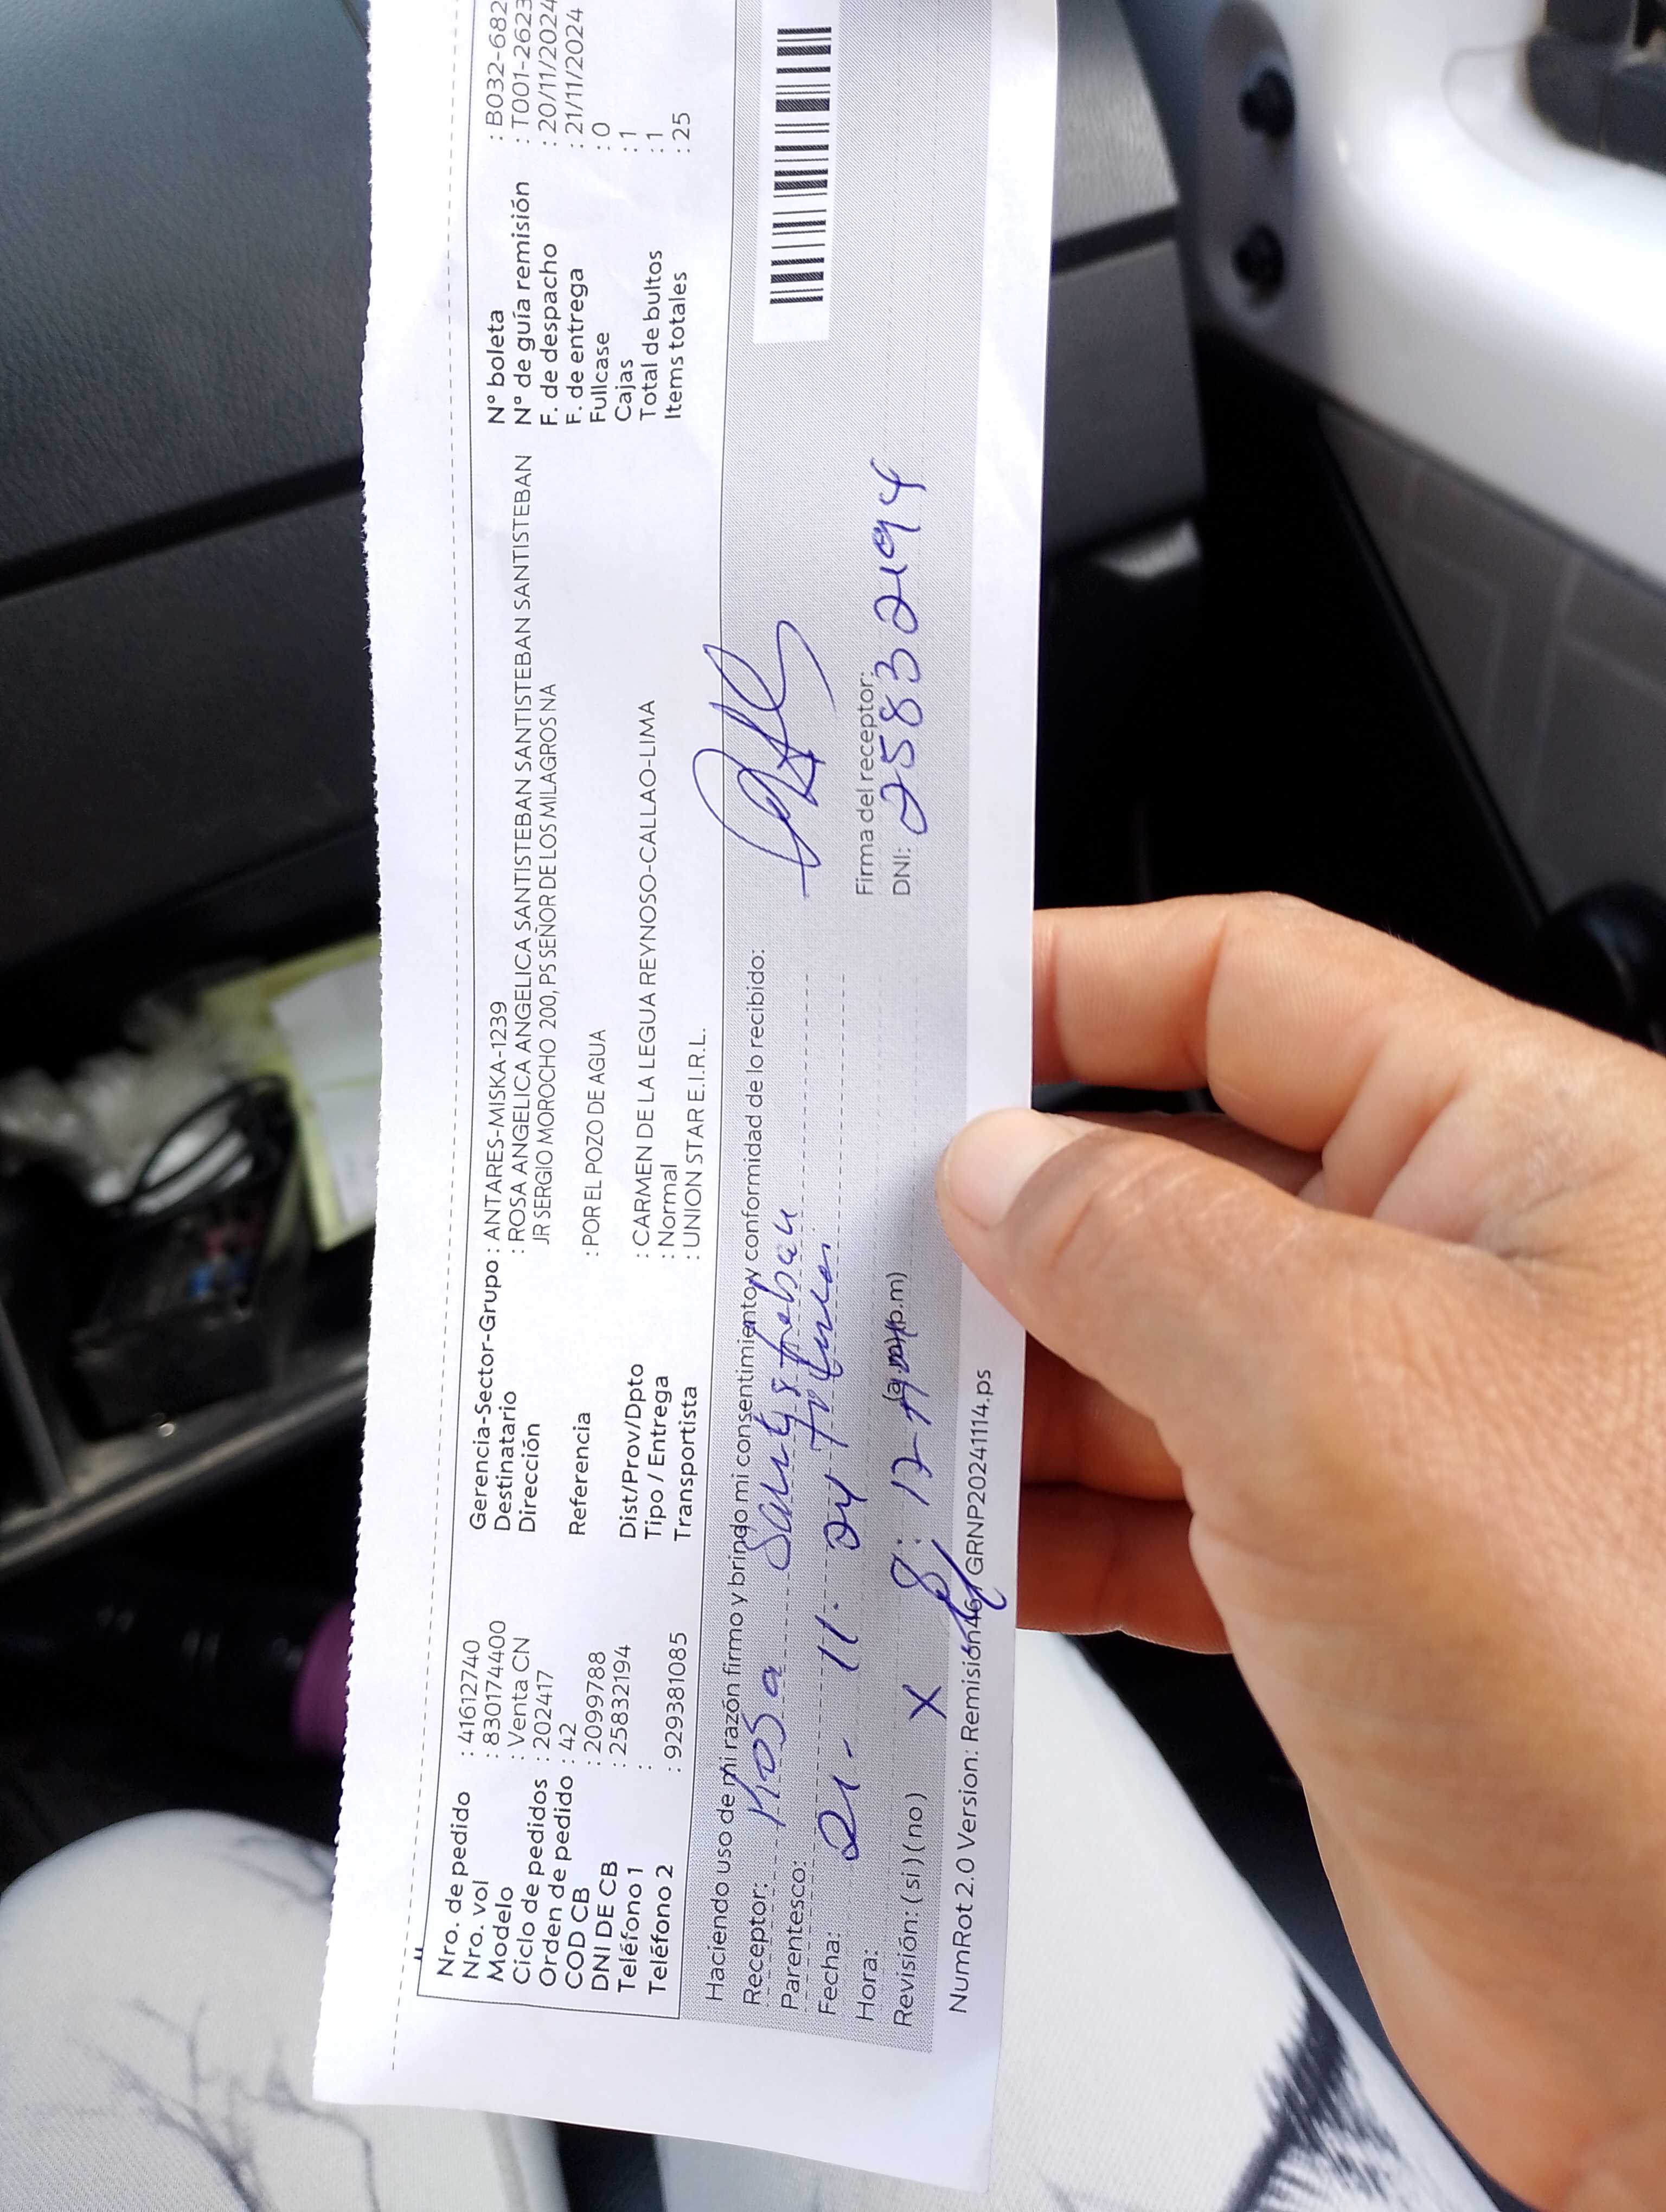 Nro. de pedido : 41612740
Nro. vol : 830174400
Modelo : Venta CN
Ciclo de pedidos : 202417
Orden de pedido : 42
COD CB : 2099788
DNI DE CB : 25832194
Teléfono 1 :
Teléfono 2 : 929381085
Gerencia-Sector-Grupo : ANTARES-MISKA-1239
Destinatario : ROSA ANGELICA ANGELICA SANTISTEBAN SANTISTEBAN SANTISTEBAN SANTISTEBAN
Dirección JR SERGIO MOROCHO 200, PS SEÑOR DE LOS MILAGROS NA
Referencia : POR EL POZO DE AGUA
Dist/Prov/Dpto : CARMEN DE LA LEGUA REYNOSO-CALLAO-LIMA
Tipo / Entrega : Normal
Transportista : UNION STAR E.I.R.L.
N° boleta : B032-682
N° de guía remisión : T001-2623
F. de despacho : 20/11/2024
F. de entrega : 21/11/2024
Fullcase : 0
Cajas : 1
Total de bultos : 1
Items totales : 25
Haciendo uso de mi razón firmo y brindo mi consentimiento y conformidad de lo recibido:
Receptor: Rosa Santisteban
Parentesco:
Fecha: 21. 11. 24
Hora: 8:17 (a.m)(p.m)
Revisión: (si) (no) X
Firma del receptor:
DNI: 25832194
NumRot 2.0 Version: Remisión46 GRNP20241114.ps